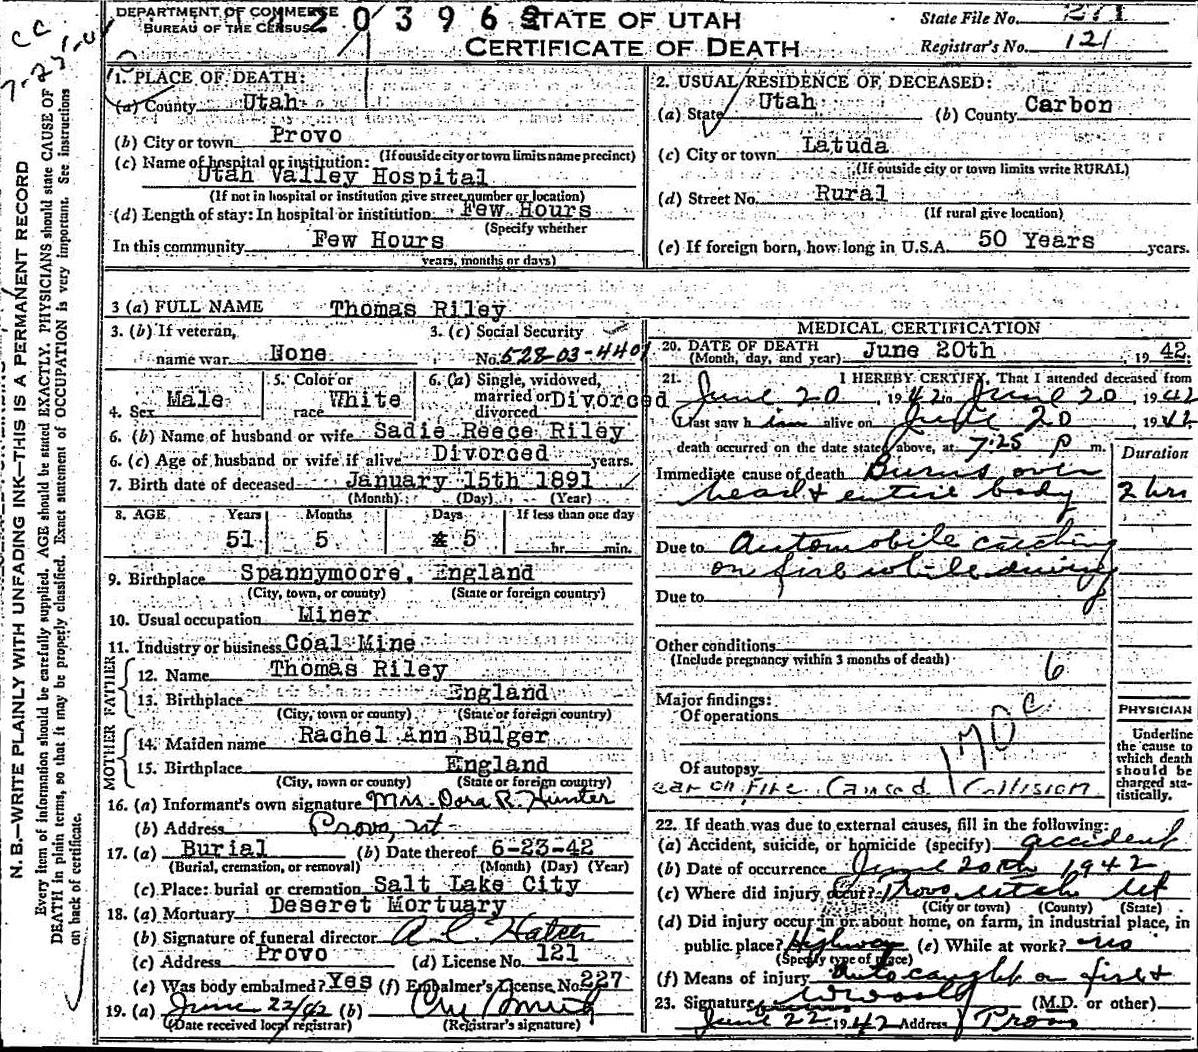 DEPARTMENT OF COMMERCE
BUREAU OF THE CENSUS
STATE OF UTAH
CERTIFICATE OF DEATH
State File No. 271
Registrar's No. 121
1. PLACE OF DEATH:
(a) County Utah
(b) City or town Provo
(If outside city or town limits name precinct)
(c) Name of hospital or institution:
Utah Valley Hospital
(If not in hospital or institution give street number or location)
(d) Length of stay: In hospital or institution Few Hours
(Specify whether
In this community Few Hours
years, months or days)
2. USUAL RESIDENCE OF DECEASED:
(a) State Utah (b) County Carbon
(c) City or town Latuda
(If outside city or town limits write RURAL)
(d) Street No. Rural
(If rural give location)
(e) If foreign born, how long in U.S.A. 50 Years years.
3 (a) FULL NAME Thomas Riley
3. (b) If veteran, 3. (c) Social Security
name war None No. 528-03-4401
4. Sex Male 5. Color or race White 6. (a) Single, widowed, married or divorced Divorced
6. (b) Name of husband or wife Sadie Reece Riley
6. (c) Age of husband or wife if alive Divorced years.
7. Birth date of deceased January 15th 1891
(Month) (Day) (Year)
8. AGE Years Months Days If less than one day
51 5 5 hr. min.
9. Birthplace Spannymoore, England
(City, town, or county) (State or foreign country)
10. Usual occupation Miner
11. Industry or business Coal Mine
FATHER
12. Name Thomas Riley
13. Birthplace England
(City, town or county) (State or foreign country)
MOTHER
14. Maiden name Rachel Ann Bulger
15. Birthplace England
(City, town or county) (State or foreign country)
16. (a) Informant's own signature Mrs. Dora R. Hunter
(b) Address Provo, Ut
17. (a) Burial (b) Date thereof 6-23-42
(Burial, cremation, or removal) (Month) (Day) (Year)
(c) Place: burial or cremation Salt Lake City
18. (a) Mortuary Deseret Mortuary
(b) Signature of funeral director
(c) Address Provo (d) License No. 121
(e) Was body embalmed? Yes (f) Embalmer's License No. 227
19. (a) June 22/42 (b)
(Date received local registrar) (Registrar's signature)
MEDICAL CERTIFICATION
20. DATE OF DEATH June 20th 1942
(Month, day, and year)
21. I HEREBY CERTIFY, That I attended deceased from
June 20, 1942 to June 20, 1942
I last saw him alive on June 20 1942
death occurred on the date stated above, at 7:25 P m.
Duration
Immediate cause of death Burns over
head & entire body 2 hrs
Due to Automobile catching
on fire while driving
Due to
Other conditions
(Include pregnancy within 3 months of death)
6
Major findings:
Of operations
170 c
Of autopsy
car on fire Caused Collision
PHYSICIAN
Underline
the cause to
which death
should be
charged sta-
tistically.
22. If death was due to external causes, fill in the following:
(a) Accident, suicide, or homicide (specify) accident
(b) Date of occurrence June 20th 1942
(c) Where did injury occur? Provo Utah Ut
(City or town) (County) (State)
(d) Did injury occur in or about home, on farm, in industrial place, in
public place? Highway (e) While at work? no
(Specify type of place)
(f) Means of injury Auto caught on fire &
23. Signature (M.D. or other)
June 22 1942 Address Provo
N. B.—WRITE PLAINLY WITH UNFADING INK—THIS IS A PERMANENT RECORD
Every item of information should be carefully supplied. AGE should be stated EXACTLY. PHYSICIANS should state CAUSE OF
DEATH in plain terms, so that it may be properly classified. Exact statement of OCCUPATION is very important. See instructions
on back of certificate.